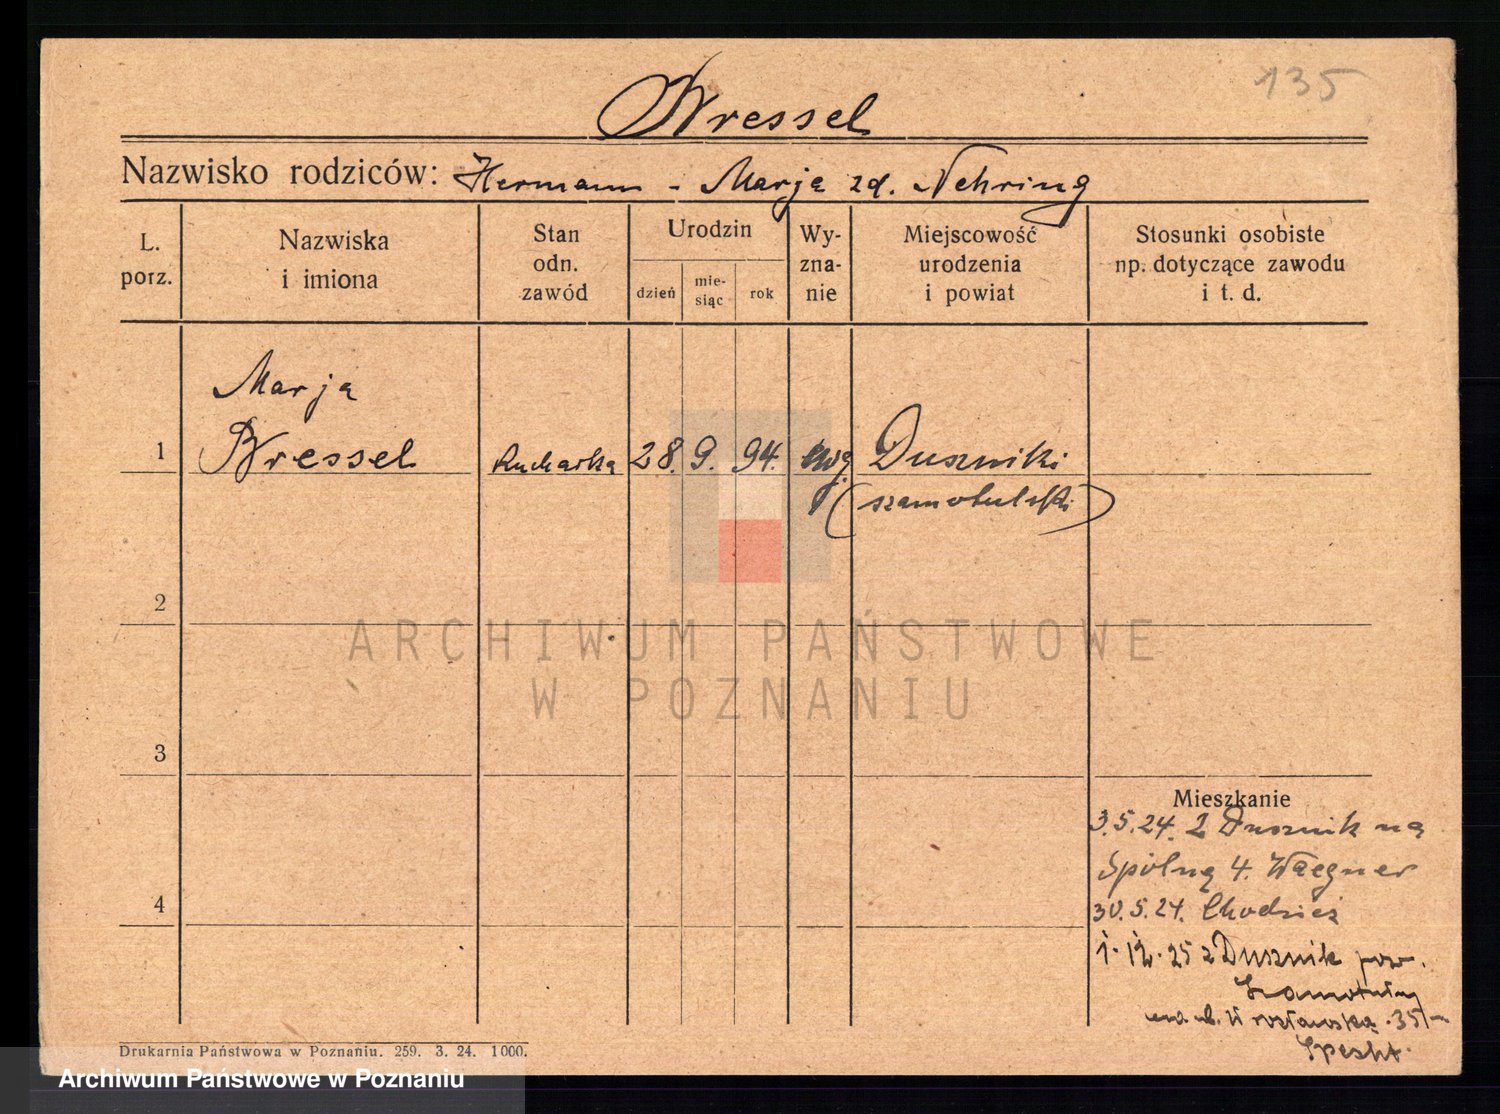 135
Wressel
Nazwisko rodziców: Hermann - Marja zd. Nehring
L. porz.
Nazwiska i imiona
Stan odn. zawód
Urodzin
dzień
mie-siąc
rok
Wy-zna-nie
Miejscowość urodzenia i powiat
Stosunki osobiste np. dotyczące zawodu i t. d.
Marja
1 Wressel kucharka 28. 9. 94. ewg Duszniki
(szamotulski)
2
3
4
Mieszkanie
3.5.24. z Dusznik na
Spólną 4. Waegner
30.5.24. Chodzież
1.12.25 z Dusznik pow.
Szamotuły
na ul. Wrocławską 35
Specht.
ARCHIWUM PAŃSTWOWE
W POZNANIU
Drukarnia Państwowa w Poznaniu. 259. 3. 24. 1000.
Archiwum Państwowe w Poznaniu